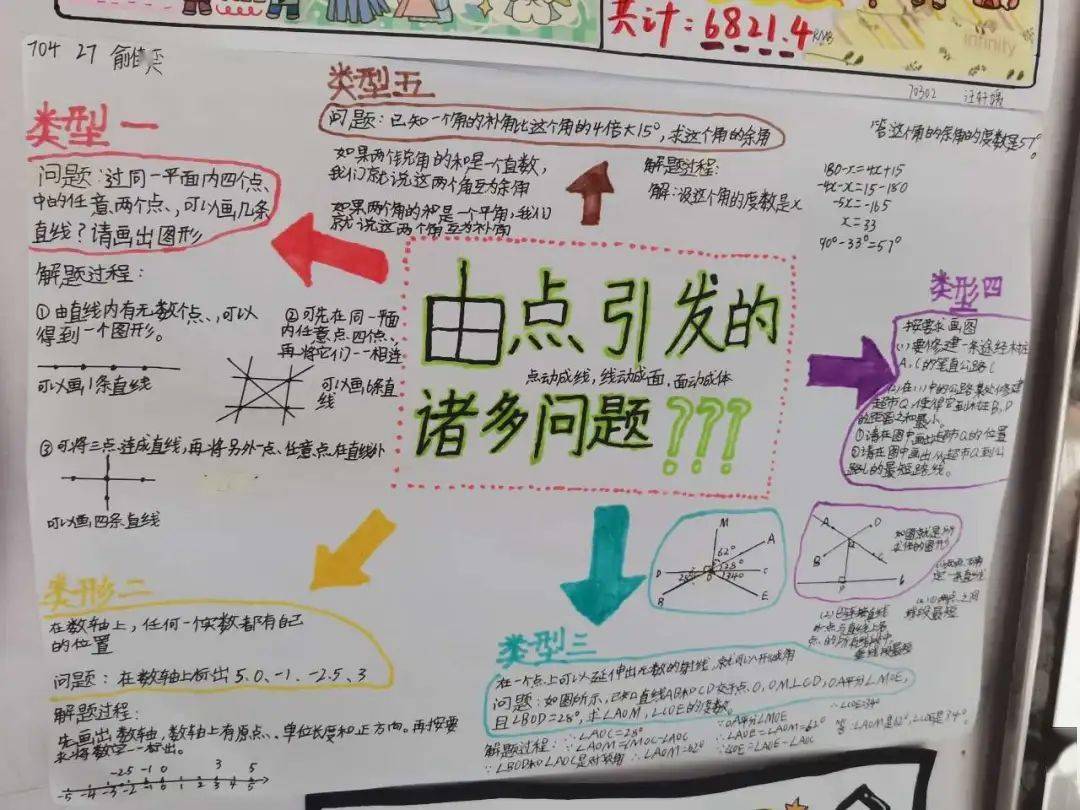 共计:6821.4
infinity
70302
704 27
类型一
问题:过同一平面内四个点
中的任意两个点、可以画几条
直线?请画出图形
解题过程:
①由直线内有无数个点、可以
得到一个图形。
可以画1条直线
②可先在同一平面
内任意点四点、
再将它们一一相连
可以画6条直
线
③可将三点连成直线,再将另外一点、任意点在直线外
可以画四条直线
类型五
问题:已知一个角的补角比这个角的4倍大15°,求这个角的余角
如果两个锐角的和是一个直角,
我们就说这两个角互为余角
如果两个角的和是一个平角,我们
就说这两个角互为补角
解题过程:
解:设这个角的度数是x
180-x=4x+15
-4x-x=15-180
-5x=-165
x=33
90°-33°=57°
答这个角的余角的度数是57°
由点引发的
点动成线,线动成面,面动成体
诸多问题???
类形四
按要求画图
(1)要修建一条途经木桩
A,C的笔直公路l
(2)在(1)中的公路某处修建
超市Q,使得它到木桩B,D
的距离之和最小。
①请在图中画出超市Q的位置
②请在图中画出从超市Q到公
路l的最短路线。
如图就是所
求作的图形
类形二
在数轴上,任何一个实数都有自己
的位置
问题:在数轴上标出5、0、-1、-2.5、3
解题过程:
先画出数轴,数轴上有原点、单位长度和正方向。再按要
求将数字一一标出。
-2.5 -1 0 3 5
-5 -4 -3 -2 -1 0 1 2 3 4 5
M
A
62°
28°
D
C
B
E
类型三
在一个点上可以延伸出无数的射线,就可以形成角
问题:如图所示,已知直线AB和CD交于点O,OM⊥CD,OA平分∠MOE,
且∠BOD=28°,求∠AOM,∠COE的度数。
解题过程:
∵∠BOD和∠AOC是对顶角
∴∠AOC=28°
∵∠AOM=∠MOC-∠AOC
∴∠AOM=62°
∵OA平分∠MOE
∴∠AOE=∠AOM=62°
∵∠COE=∠AOE-∠AOC
∴∠COE=34°
答:∠AOM是62°,∠COE是34°